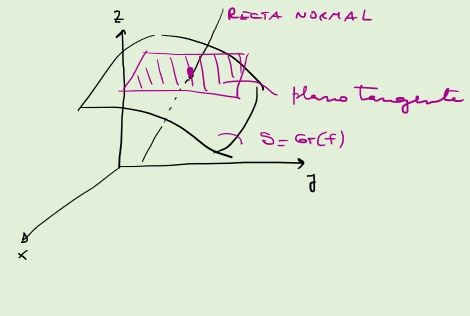 z
RECTA NORMAL
plano tangente
S = Gr(f)
y
x